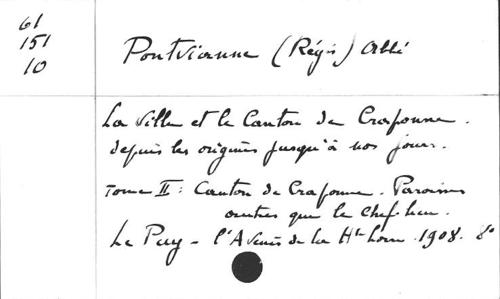 61
151
10
Pontvianne (Régis) Abbé
La Ville et le Canton de Craponne.
depuis les origines jusqu'à nos jours.
Tome II : Canton de Craponne. Paroisses
autres que le Chef-lieu.
Le Puy - l'Avenir de la Hte Loire. 1908. 8º